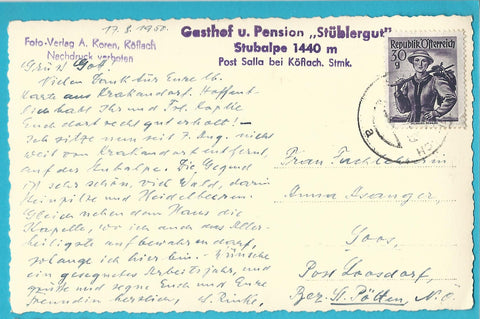 17.8.1950.
Gasthof u. Pension „Stüblergut"
Stubalpe 1440 m
Post Salla bei Köflach. Stmk.
Foto-Verlag A. Koren, Köflach
Nachdruck verboten
Republik Österreich
30
g
Grüß Gott
Vielen Dank für Eure lb.
Karte aus Krakaudorf. Hoffent-
lich habt Ihr und
Euch dort recht gut erholt! –
Ich sitze nun seit 7. Aug. nicht
weit von Krakaudorf entfernt
auf der Stubalpe. Die Gegend
ist sehr schön, viel Wald, darin
Steinpilze und Heidelbeeren.
Gleich neben dem Haus die
Kapelle, wo ich auch das Aller-
heiligste aufbewahren darf,
solange ich hier bin. – Wünsche
ein gesegnetes Arbeitsjahr, und
grüße und segne Euch und Eure
Freundin herzlich,
Frau Fachlehrerin
Anna
Loos,
Post Loosdorf,
Bez. St. Pölten, N.Ö.